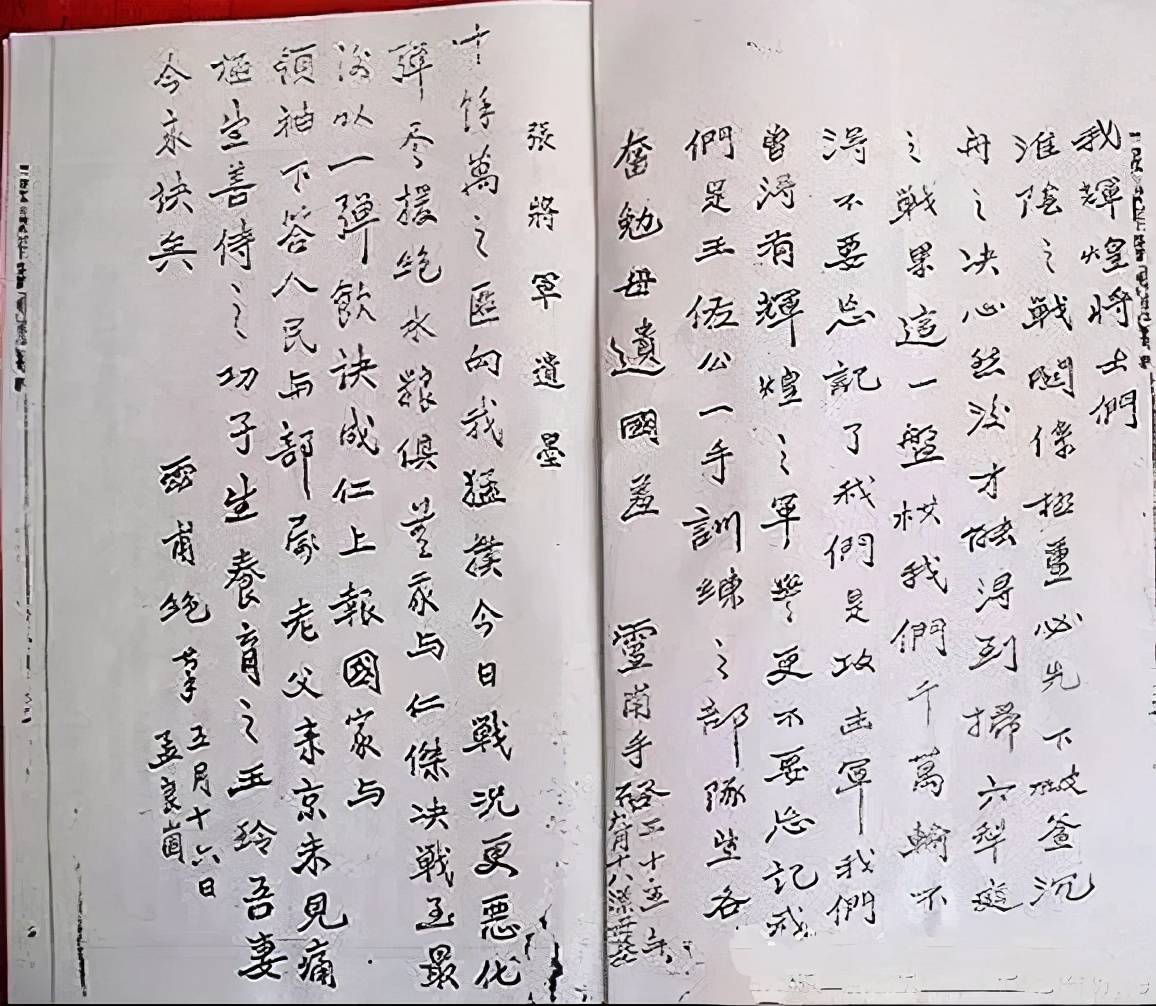 我輝煌將士們
淮陰之戰關係極重必先下破釜沉
舟之決心然後才能得到掃穴犁庭
之戰果這一盤棋我們千萬輸不
得不要忘記了我們是攻击軍我們
曾得有輝煌之軍譽更不要忘記我
們是王佐公一手訓練之部隊望各
奮勉毋遺國羞
靈甫手啓
張將軍遺墨
十餘萬之匪向我猛撲今日戰況更惡化
彈盡援絕水糧俱無余与仁傑决戰至最
後以一彈飲訣成仁上報國家与
領袖下答人民与部屬老父來京未見痛
極望善待之幼子望養育之玉玲吾妻
今永訣矣
靈甫絕筆
五月十六日
孟良崮